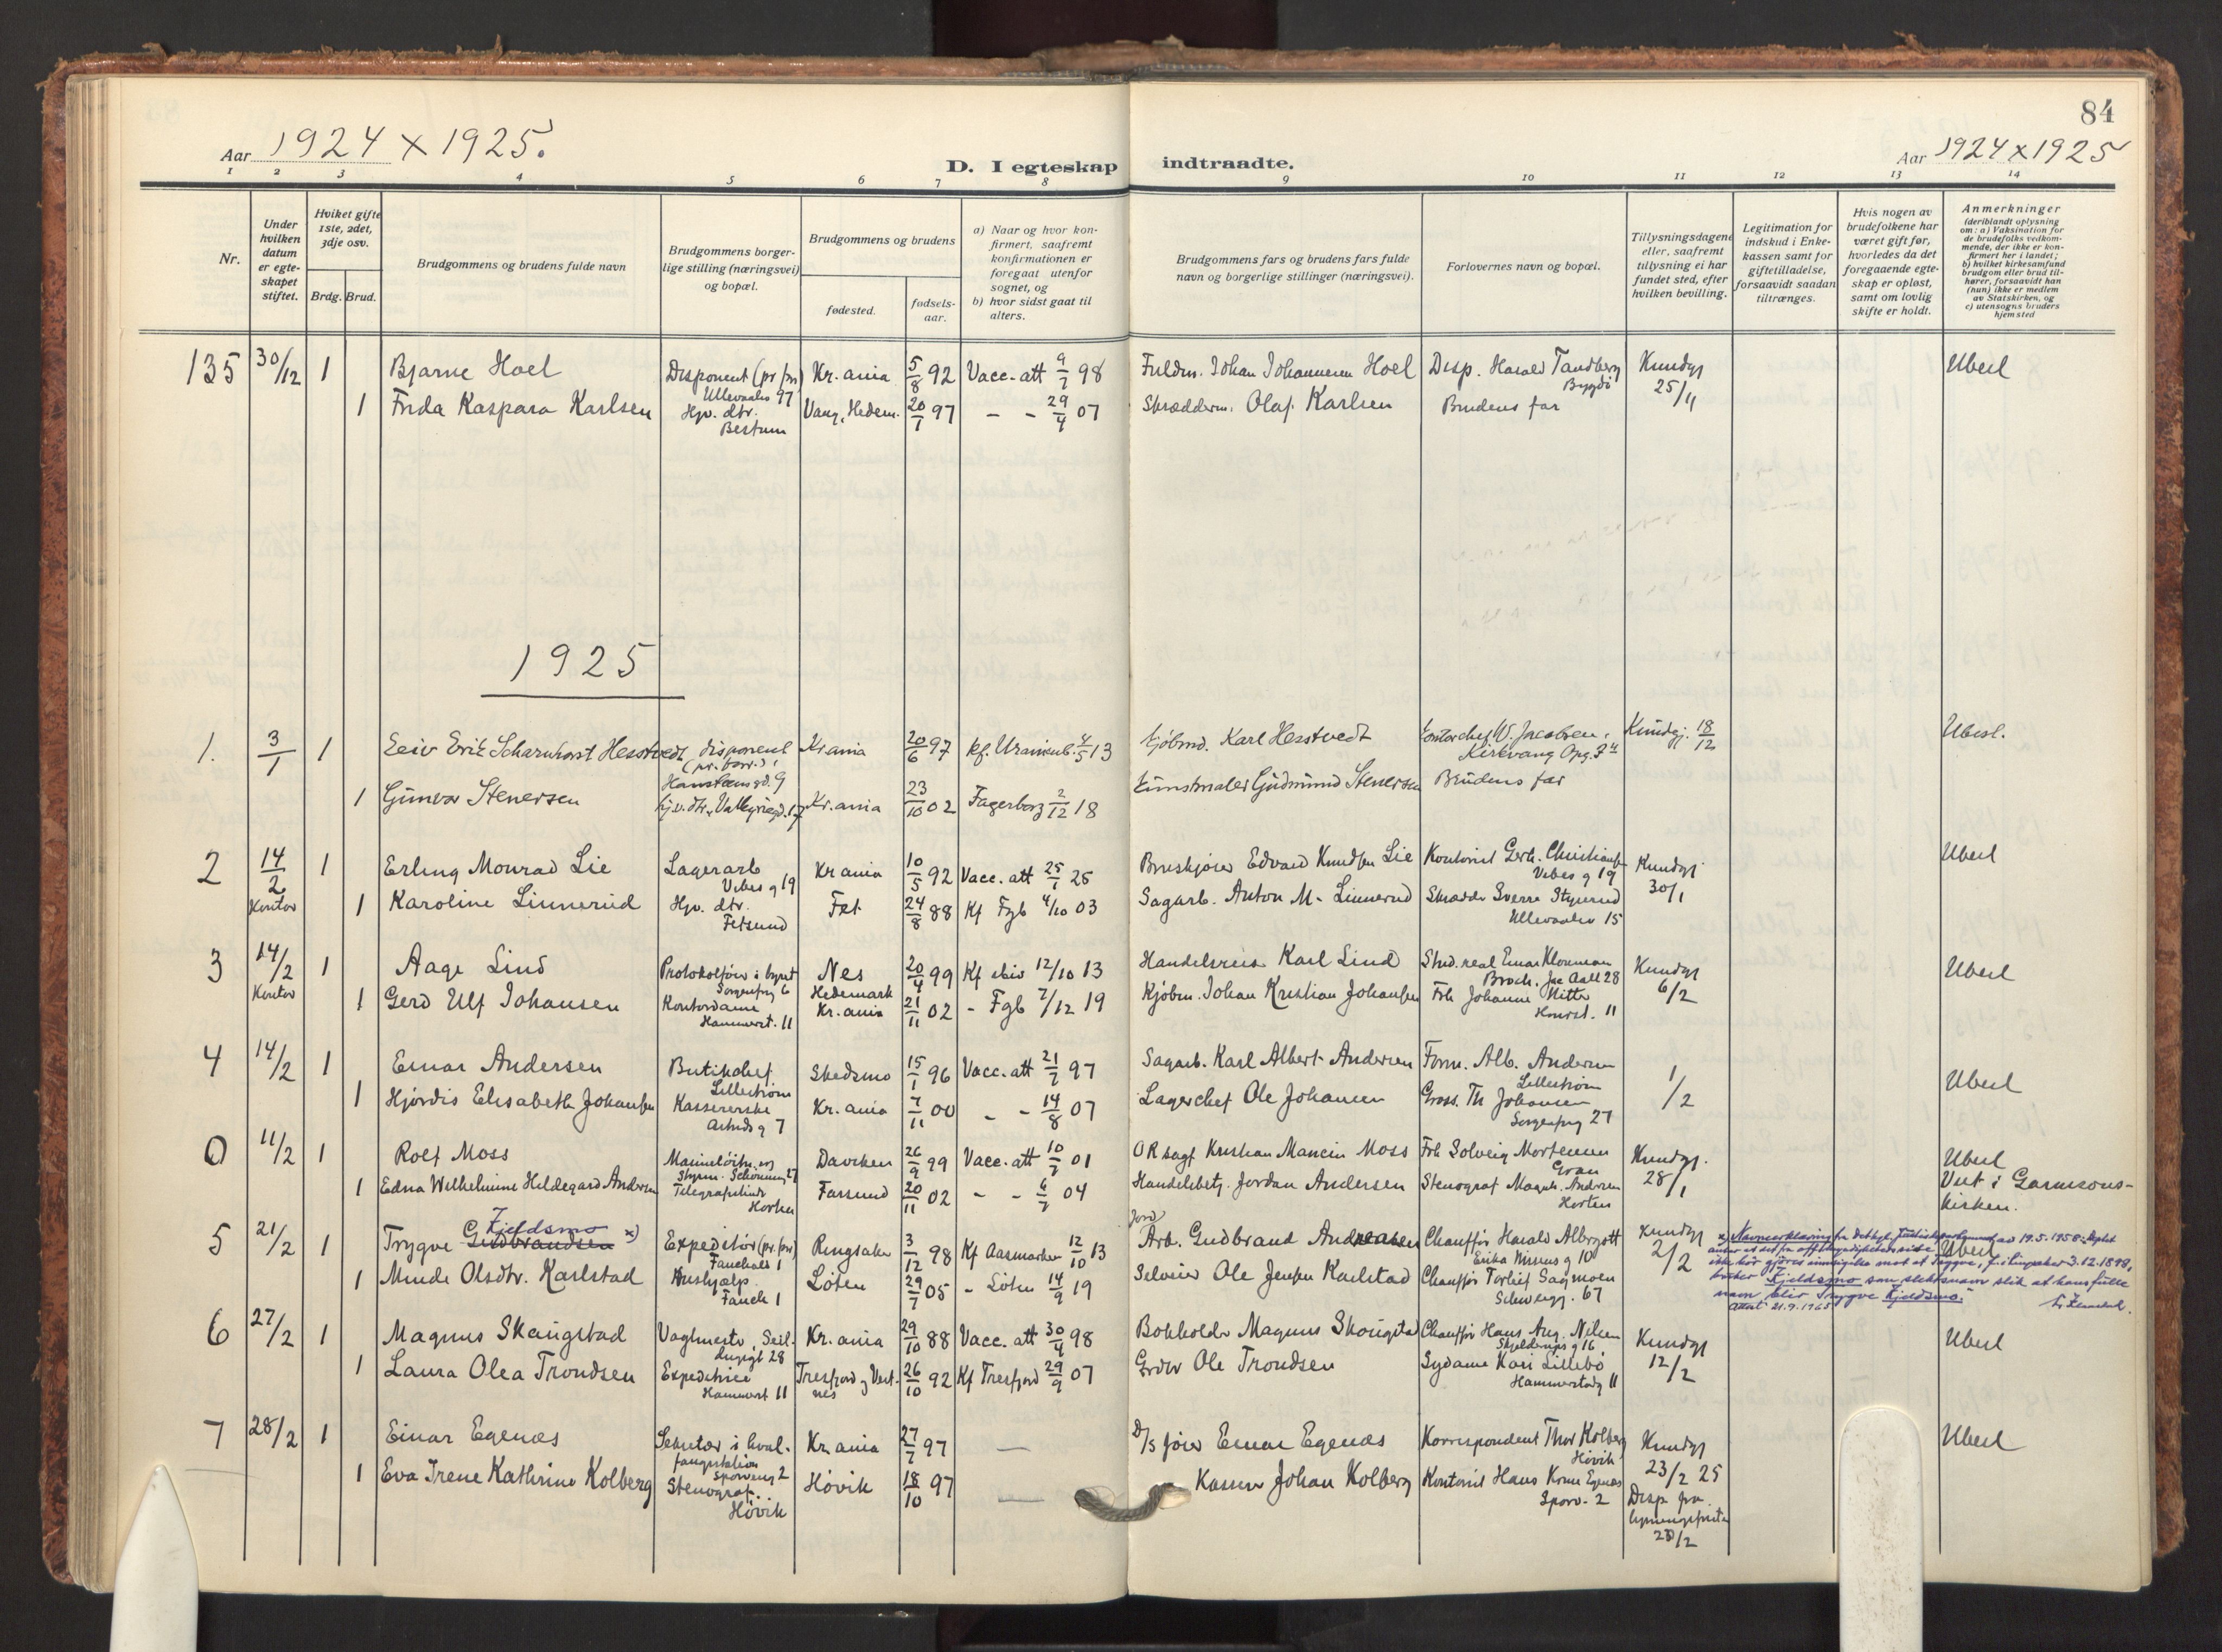 84
Aar 1924 x 1925.
D. I egteskap indtraadte.
Aar 1924 x 1925
1 2 3 4 5 6 7 8 9 10 11 12 13 14
Nr.
Under hvilken datum er egteskapet stiftet.
Hviket gifte 1ste, 2det, 3dje osv.
Brdg. Brud.
Brudgommens og brudens fulde navn
Brudgommens borgerlige stilling (næringsvei) og bopæl.
Brudgommens og brudens
fødested.
fødselsaar.
a) Naar og hvor konfirmert, saafremt konfirmationen er foregaat utenfor sognet, og
b) hvor sidst gaat til alters.
Brudgommens fars og brudens fars fulde navn og borgerlige stillinger (næringsvei).
Forlovernes navn og bopæl.
Tillysningsdagene eller, saafremt tillysning ei har fundet sted, efter hvilken bevilling.
Legitimation for indskud i Enkekassen samt for giftetilladelse, forsaavidt saadan tiltrænges.
Hvis nogen av brudefolkene har været gift før, hvorledes da det foregaaende egteskap er opløst, samt om lovlig skifte er holdt.
Anmerkninger (deriblandt oplysning om: a) Vaksination for de brudefolks vedkommende, der ikke er konfirmert her i landet; b) hvilket kirkesamfund brudgom eller brud tilhører, forsaavidt han (hun) ikke er medlem av Statskirken, og c) utensogns bruders hjemsted
135 30/12 1 Bjarne Hoel Disponent (pr/pr) Ullevaalsv 97 Kr.ania 5/8 92 Vacc. att 9/7 98 Fuldm. Johan Johannesen Hoel Disp. Harald Tandberg Bygdö Kundgj 25/11 Ubesl
1 Frida Kaspara Karlsen Hjv. dtr. Bestum Vang, Hedem. 20/1 97 - - 29/4 07 Skrædderm. Olaf Karlsen Brudens far
1925
1. 3/1 1 Eeiv Erik Scharnhorst Hesstvedt disponent (pr. forr.) Hansteensgd. 9 Kr.ania 20/6 97 kf. Uranienb. 4/5 13 Kjöbmd. Karl Hesstvedt Kontorchef W. Jacobsen, Kirkvang Kundgj. 18/12 Ubesl.
1 Gunvor Stenersen hjv. dtr. Valkyriegd. 17 Kr.ania 23/10 02 Fagerborg 2/12 18 Kunstmaler Gudmund Stenersen Brudens far
2 14/2 Kontor 1 Erling Monrad Lie Lagerarb Vibes g 19 Kr ania 10/5 92 Vacc. att 25/1 25 Edvard Knudsen Lie Kontorist Gerh. Christiansen Vibes g 19 Kundgj. 30/1 Ubesl
1 Karoline Linnerud Hjv. dtr. Fetsund Fet 24/8 88 Kf Fgb 4/10 03 Sagarb. Anton M. Linnerud Skrædder Sverre Ullevaalsv 15
3 14/2 Kontor 1 Aage Lind Protokolfører i byret Sorgenfrig 6 Nes Hedemark 20/4 99 Kf 12/10 13 Handelsreis Karl Lind Stud. real Einar Kloumann Broch. Jac Aall 28 Kundgj 6/2 Ubesl
1 Gerd Ulf Johansen Kontordame Hammerst. 11 Kr. ania 21/11 02 - Fgb 7/12 19 Kjöbm. Johan Kristian Johansen Frk Johanne Hammerst. 11
4 14/2 1 Einar Andersen Butikchef Lilleström Skedsmo 15/1 96 Vacc. att 21/7 97 Sagarb. Karl Albert Andersen Form. Alb. Andersen Lilleström 1/2 Ubesl
1 Hjördis Elisabeth Johansen Kassererske 7 Kr. ania 7/11 00 - - 14/8 07 Lagerchef Ole Johansen Gross. Th Johansen Sorgenfrig 27
0 11/2 1 Rolf Moss Marinelöitn. og Styrm. Schönning 27 Daviken 26/9 99 Vacc. att 10/7 01 OR sagf Kristian Moss Frk Solveig Mortensen Gran Kundgj. 28/1 Ubesl
1 Edna Wilhelmine Hildegard Andersen Telegrafistinde Horten Farsund 20/11 02 - - 6/7 04 Handelsbetj. Jordan Andersen Stenograf Magnh. Andersen Horten Viet i Garnisonskirken.
5 21/2 1 Trygve Gudbrandsen Kjeldsmo x) Expeditör (pr./pr) Fauchalds 1 Ringsaker 3/12 98 Kf Aasmarken 12/10 13 Arb. Gudbrand Andreassen Chauffør Harald Albrigtt Erika Nissens g 10 Kundgj 2/2 Ubesl
x) Navneerklæring fra det kgl. Justisdepartement av 19.5.1958: Deptet anser at det fra offentlighetens side ikke bör gjöres innsigelse mot at Trygve, f. i Ringsaker 3.12.1898, bruker Kjeldsmo som slektsnavn slik at hans fulle navn blir Trygve Kjeldsmo."
Attest 21.9.1965
1 Minda Olsdtr. Karlstad Hushjælp Fauch 1 Löten 29/7 05 - Löten 14/9 19 Selveier Ole Jensen Karlstad Chauffør Torleif Sagmoen Schweigg. 67
6 27/2 1 Magnus Skaugstad Vagtmester, Seilduksgt 28 Kr. ania 29/10 88 Vacc. att 30/4 98 Bokholder Magnus Skougstad Chauffør Hans Aug. Nilsen Skjelderups g 16 Kundgj 12/2 Ubesl
1 Laura Olea Trondsen Expeditrice Hammerst 11 Tresfjord g Vestnes 26/10 92 Kf Tresfjord 29/9 07 Grdbr Ole Trondsen Sydame Kari Lillebö Hammerstadg 11
7 28/2 1 Einar Egenæs Sekretær i hvalfangstation Sporveisg 2 Kr. ania 27/7 97 — D/s förer Einar Egenæs Korrespondent Thor Kolberg Hövik Kundgj 23/2 25 Ubesl
1 Eva Irene Kathrine Kolberg Stenograf. Hövik Hövik 18/10 97 — Kasserer Johan Kolberg Kontorist Hans Egenæs Sporv. 2 Disp fra lysningsfristen 28/2